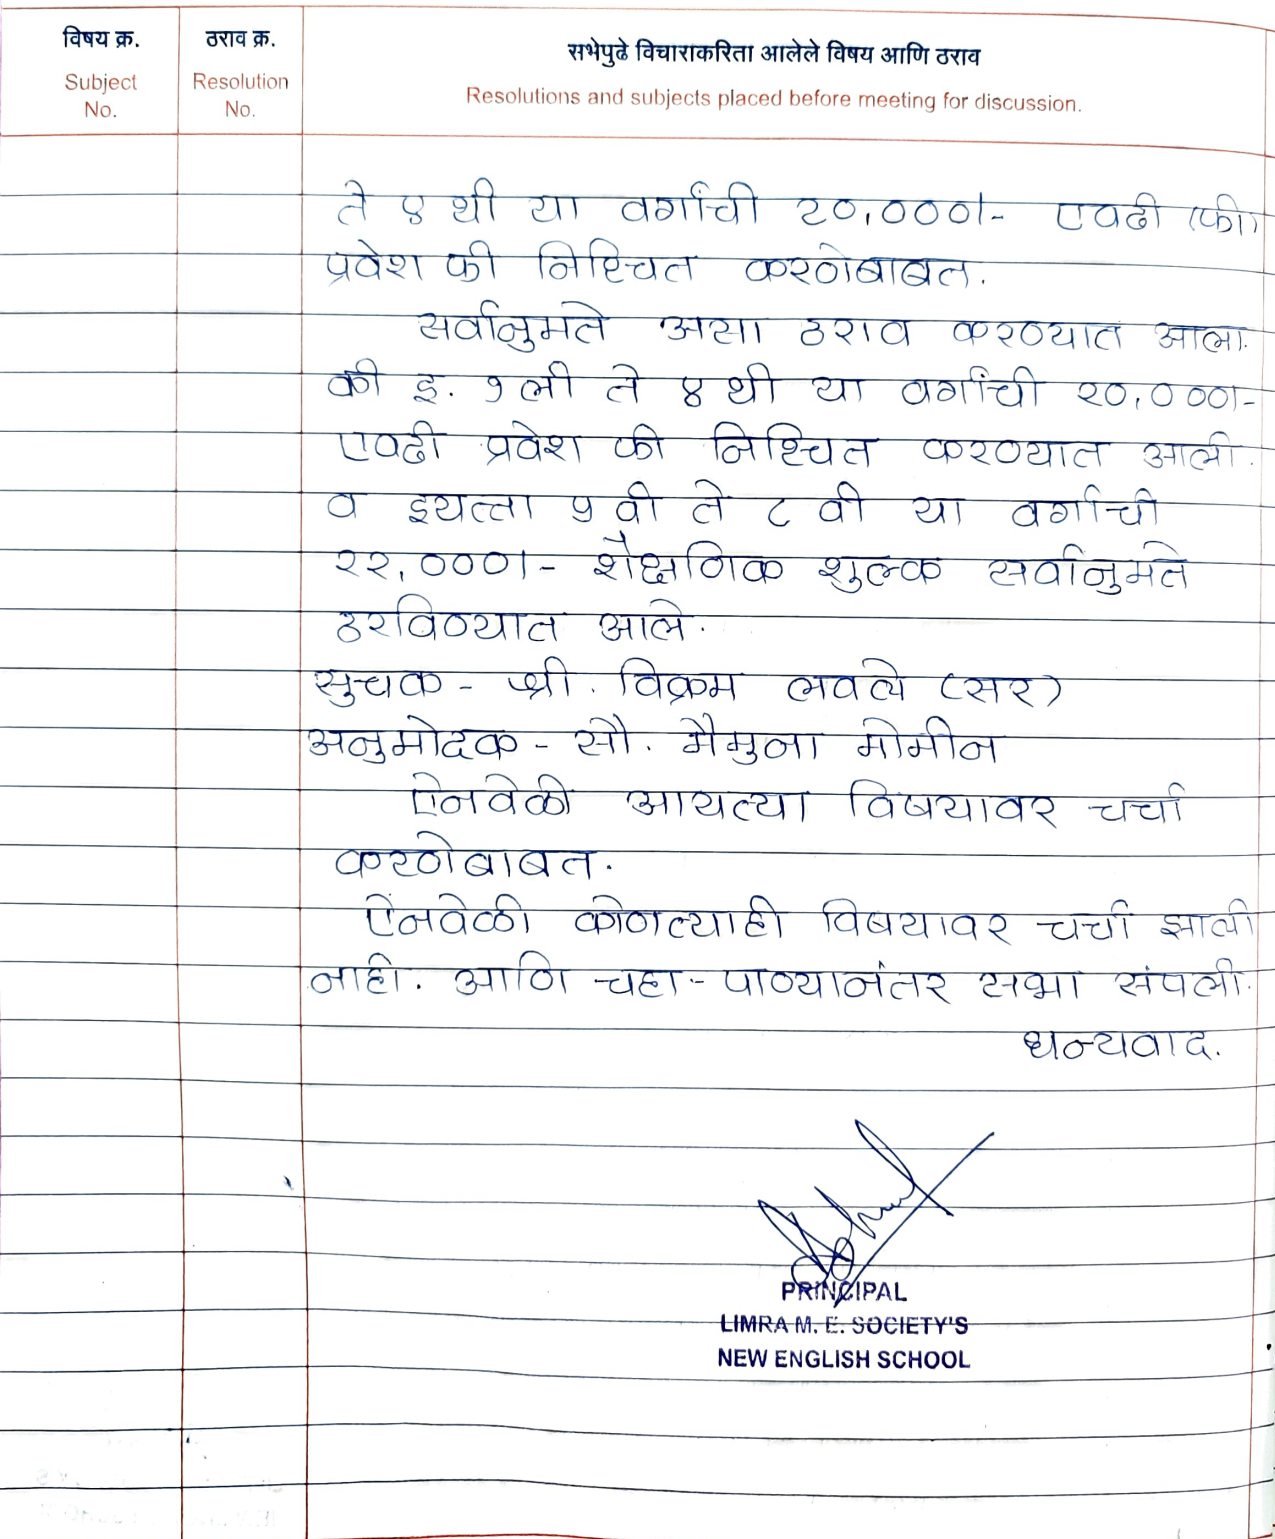 विषय क्र. ठराव क्र. सभेपुढे विचाराकरिता आलेले विषय आणि ठराव
Subject No. Resolution No. Resolutions and subjects placed before meeting for discussion.
ते ४ थी या वर्गाची २०,०००/- एवढी (फी)
प्रवेश फी निश्चित करणेबाबत.
सर्वानुमते असा ठराव करण्यात आला.
की इ. १ली ते ४ थी या वर्गाची २०,०००/-
एवढी प्रवेश फी निश्चित करण्यात आली.
व इयत्ता ५ वी ते ८ वी या वर्गाची
२२,०००/- शैक्षणिक शुल्क सर्वानुमते
ठरविण्यात आले.
सुचक - श्री. विक्रम लवटे (सर)
अनुमोदक - सौ. मैमुना मोमीन
ऐनवेळी आयत्या विषयावर चर्चा
करणेबाबत.
ऐनवेळी कोणत्याही विषयावर चर्चा झाली
नाही. आणि चहा-पाण्यानंतर सभा संपली.
धन्यवाद.
PRINCIPAL
LIMRA M. E. SOCIETY'S
NEW ENGLISH SCHOOL